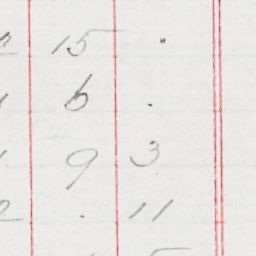 2 15 .
6 .
9 3
2 . 11